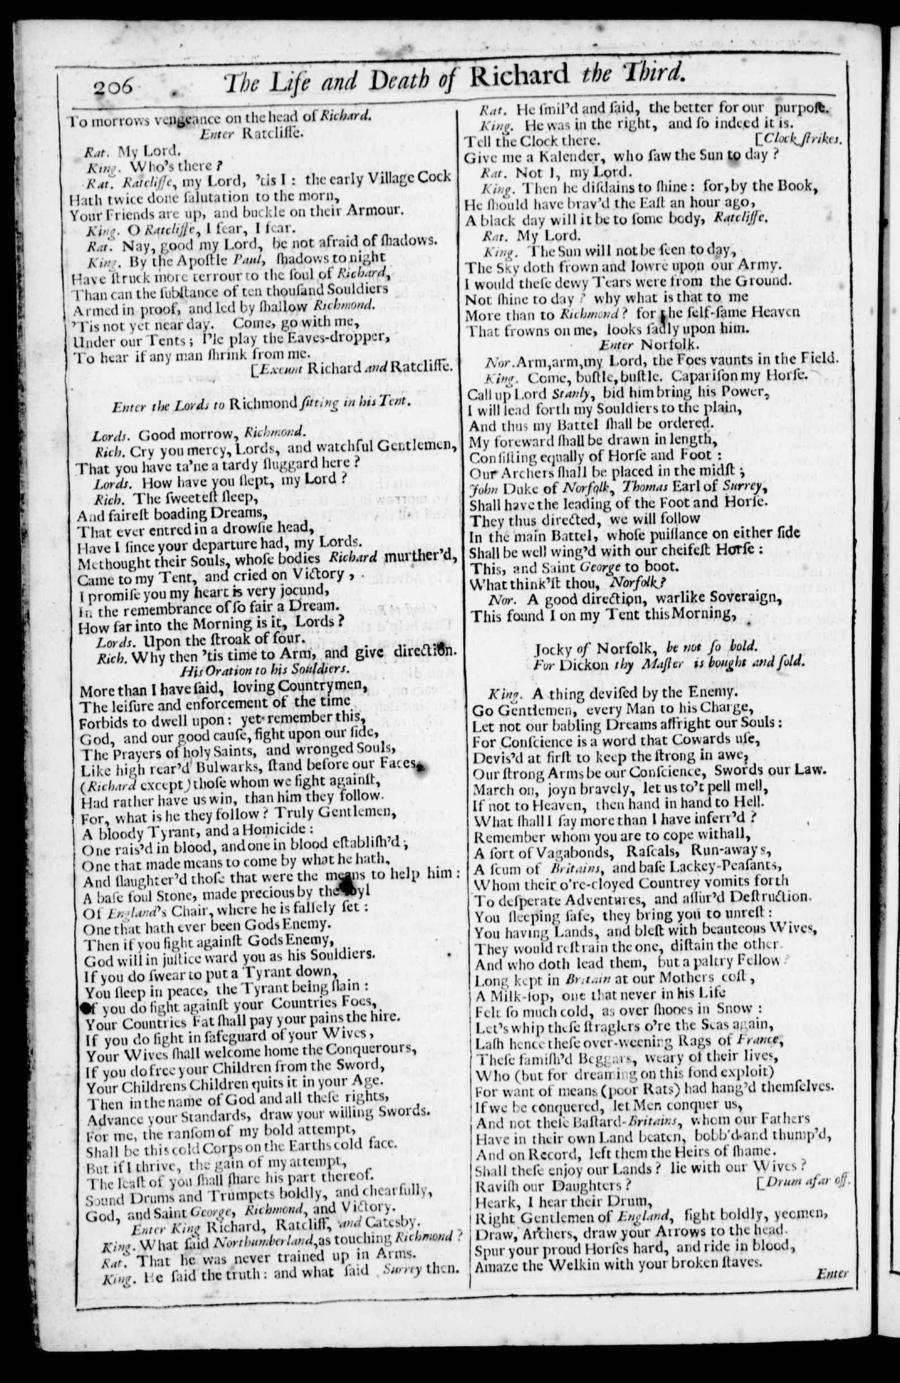 206 The Life and Death of Richard the Third.
To morrows vengeance on the head of Richard.
Enter Ratcliffe.
Rat. My Lord.
King. Who's there?
Rat. Ratcliffe, my Lord, 'tis I: the early Village Cock
Hath twice done ſalutation to the morn,
Your Friends are up, and buckle on their Armour.
King. O Ratcliffe, I fear, I fear.
Rat. Nay, good my Lord, be not afraid of ſhadows.
King. By the Apoſtle Paul, ſhadows to night
Have ſtruck more terrour to the ſoul of Richard,
Than can the ſubſtance of ten thouſand Souldiers
Armed in proof, and led by ſhallow Richmond.
'Tis not yet near day. Come, go with me,
Under our Tents; I'le play the Eaves-dropper,
To hear if any man ſhrink from me.
[Exeunt Richard and Ratcliffe.
Enter the Lords to Richmond ſitting in his Tent.
Lords. Good morrow, Richmond.
Rich. Cry you mercy, Lords, and watchful Gentlemen,
That you have ta'ne a tardy ſluggard here?
Lords. How have you ſlept, my Lord?
Rich. The ſweeteſt ſleep,
And faireſt boading Dreams,
That ever entred in a drowſie head,
Have I ſince your departure had, my Lords.
Methought their Souls, whoſe bodies Richard murther'd,
Came to my Tent, and cried on Victory,
I promiſe you my heart is very jocund,
In the remembrance of ſo fair a Dream.
How far into the Morning is it, Lords?
Lords. Upon the ſtroak of four.
Rich. Why then 'tis time to Arm, and give direction.
His Oration to his Souldiers.
More than I have ſaid, loving Countrymen,
The leiſure and enforcement of the time
Forbids to dwell upon: yet remember this,
God, and our good cauſe, fight upon our ſide,
The Prayers of holy Saints, and wronged Souls,
Like high rear'd Bulwarks, ſtand before our Faces,
(Richard except) thoſe whom we fight againſt,
Had rather have us win, than him they follow.
For, what is he they follow? Truly Gentlemen,
A bloody Tyrant, and a Homicide:
One rais'd in blood, and one in blood eſtabliſh'd;
One that made means to come by what he hath,
And ſlaughter'd thoſe that were the means to help him:
A baſe foul Stone, made precious by the ſoyl
Of England's Chair, where he is falſely ſet:
One that hath ever been Gods Enemy.
Then if you fight againſt Gods Enemy,
God will in juſtice ward you as his Souldiers.
If you do ſwear to put a Tyrant down,
You ſleep in peace, the Tyrant being ſlain:
If you do fight againſt your Countries Foes,
Your Countries Fat ſhall pay your pains the hire.
If you do fight in ſafeguard of your Wives,
Your Wives ſhall welcome home the Conquerours,
If you do free your Children from the Sword,
Your Childrens Children quits it in your Age.
Then in the name of God and all theſe rights,
Advance your Standards, draw your willing Swords.
For me, the ranſom of my bold attempt,
Shall be this cold Corps on the Earths cold face.
But if I thrive, the gain of my attempt,
The leaſt of you ſhall ſhare his part thereof.
Sound Drums and Trumpets boldly, and chearfully,
God, and Saint George, Richmond, and Victory.
Enter King Richard, Ratcliff, and Catesby.
King. What ſaid Northumberland, as touching Richmond?
Rat. That he was never trained up in Arms.
King. He ſaid the truth: and what ſaid Surrey then.
Rat. He ſmil'd and ſaid, the better for our purpoſe.
King. He was in the right, and ſo indeed it is.
Tell the Clock there. [Clock ſtrikes.
Give me a Kalender, who ſaw the Sun to day?
Rat. Not I, my Lord.
King. Then he diſdains to ſhine: for, by the Book,
He ſhould have brav'd the Eaſt an hour ago,
A black day will it be to ſome body, Ratcliffe.
Rat. My Lord.
King. The Sun will not be ſeen to day,
The Sky doth frown and lowre upon our Army.
I would theſe dewy Tears were from the Ground.
Not ſhine to day? why what is that to me
More than to Richmond? for the ſelf-ſame Heaven
That frowns on me, looks ſadly upon him.
Enter Norfolk.
Nor. Arm, arm, my Lord, the Foes vaunts in the Field.
King. Come, buſtle, buſtle. Capariſon my Horſe.
Call up Lord Stanly, bid him bring his Power,
I will lead forth my Souldiers to the plain,
And thus my Battel ſhall be ordered.
My foreward ſhall be drawn in length,
Conſiſting equally of Horſe and Foot:
Our Archers ſhall be placed in the midſt;
John Duke of Norfolk, Thomas Earl of Surrey,
Shall have the leading of the Foot and Horſe.
They thus directed, we will follow
In the main Battel, whoſe puiſſance on either ſide
Shall be well wing'd with our cheifeſt Horſe:
This, and Saint George to boot.
What think'ſt thou, Norfolk?
Nor. A good direction, warlike Soveraign,
This found I on my Tent this Morning,
Jocky of Norfolk, be not ſo bold.
For Dickon thy Maſter is bought and ſold.
King. A thing deviſed by the Enemy.
Go Gentlemen, every Man to his Charge,
Let not our babling Dreams affright our Souls:
For Conſcience is a word that Cowards uſe,
Devis'd at firſt to keep the ſtrong in awe,
Our ſtrong Arms be our Conſcience, Swords our Law.
March on, joyn bravely, let us to't pell mell,
If not to Heaven, then hand in hand to Hell.
What ſhall I ſay more than I have inferr'd?
Remember whom you are to cope withall,
A ſort of Vagabonds, Raſcals, Run-aways,
A ſcum of Britains, and baſe Lackey-Peaſants,
Whom their o're-cloyed Countrey vomits forth
To deſperate Adventures, and aſſur'd Deſtruction.
You ſleeping ſafe, they bring you to unreſt:
You having Lands, and bleſt with beauteous Wives,
They would reſtrain the one, diſtain the other.
And who doth lead them, but a paltry Fellow?
Long kept in Britain at our Mothers coſt,
A Milk-ſop, one that never in his Life
Felt ſo much cold, as over ſhooes in Snow:
Let's whip theſe ſtraglers o're the Seas again,
Laſh hence theſe over-weening Rags of France,
Theſe famiſh'd Beggars, weary of their lives,
Who (but for dreaming on this fond exploit)
For want of means (poor Rats) had hang'd themſelves.
If we be conquered, let Men conquer us,
And not theſe Baſtard-Britains, whom our Fathers
Have in their own Land beaten, bobb'd and thump'd,
And on Record, left them the Heirs of ſhame.
Shall theſe enjoy our Lands? lie with our Wives?
Raviſh our Daughters? [Drum afar off.
Heark, I hear their Drum,
Right Gentlemen of England, fight boldly, yeomen,
Draw, Archers, draw your Arrows to the head.
Spur your proud Horſes hard, and ride in blood,
Amaze the Welkin with your broken ſtaves.
Enter